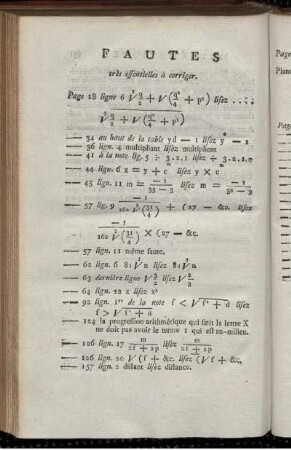 FAUTES
très essentielles à corriger.
Page 18 ligne 6 ∛q/2 + √(q²/4 + p³) lisez ....
∛q/2 + √(q²/4 + p³)
— 34 au haut de la table yd — 1 lisez y — 1
— 36 lign. 4 multipliant lisez multiplient
— 41 à la note lig. 5 ÷ 3.2.1 lisez ÷ 3.2.1.0
— 44 lign. 6 z = y + c lisez y × c
— 45 lign. 11 m = 1/35 — 3 lisez m = — 1/3² — 3
— 57 lig. 9 — 1/162 ∛(31/4) + (27 — &c. lisez
— 1/162 ∛(31/4) × (27 — &c.
— 57 lign. 11 même faute.
— 62 lign. 6 81∛n lisez 81∛n
— 63 dernière ligne √3/2 lisez √3/2
— 64 lign. 22 x lisez x²
— 92 lign. 1re de la note f < √f² + d lisez
f > √f² + a
— 124 la progression arithmétique qui finit la lettre X
ne doit pas avoir le terme 1 qui est au milieu.
— 126 lign. 17 m/2f + 2p lisez m/2f + 2p
— 126 lign. 20 √(f + &c. lisez (√f + &c,
— 157 lign. 2 distant lisez distance.
Page
Plan
Page